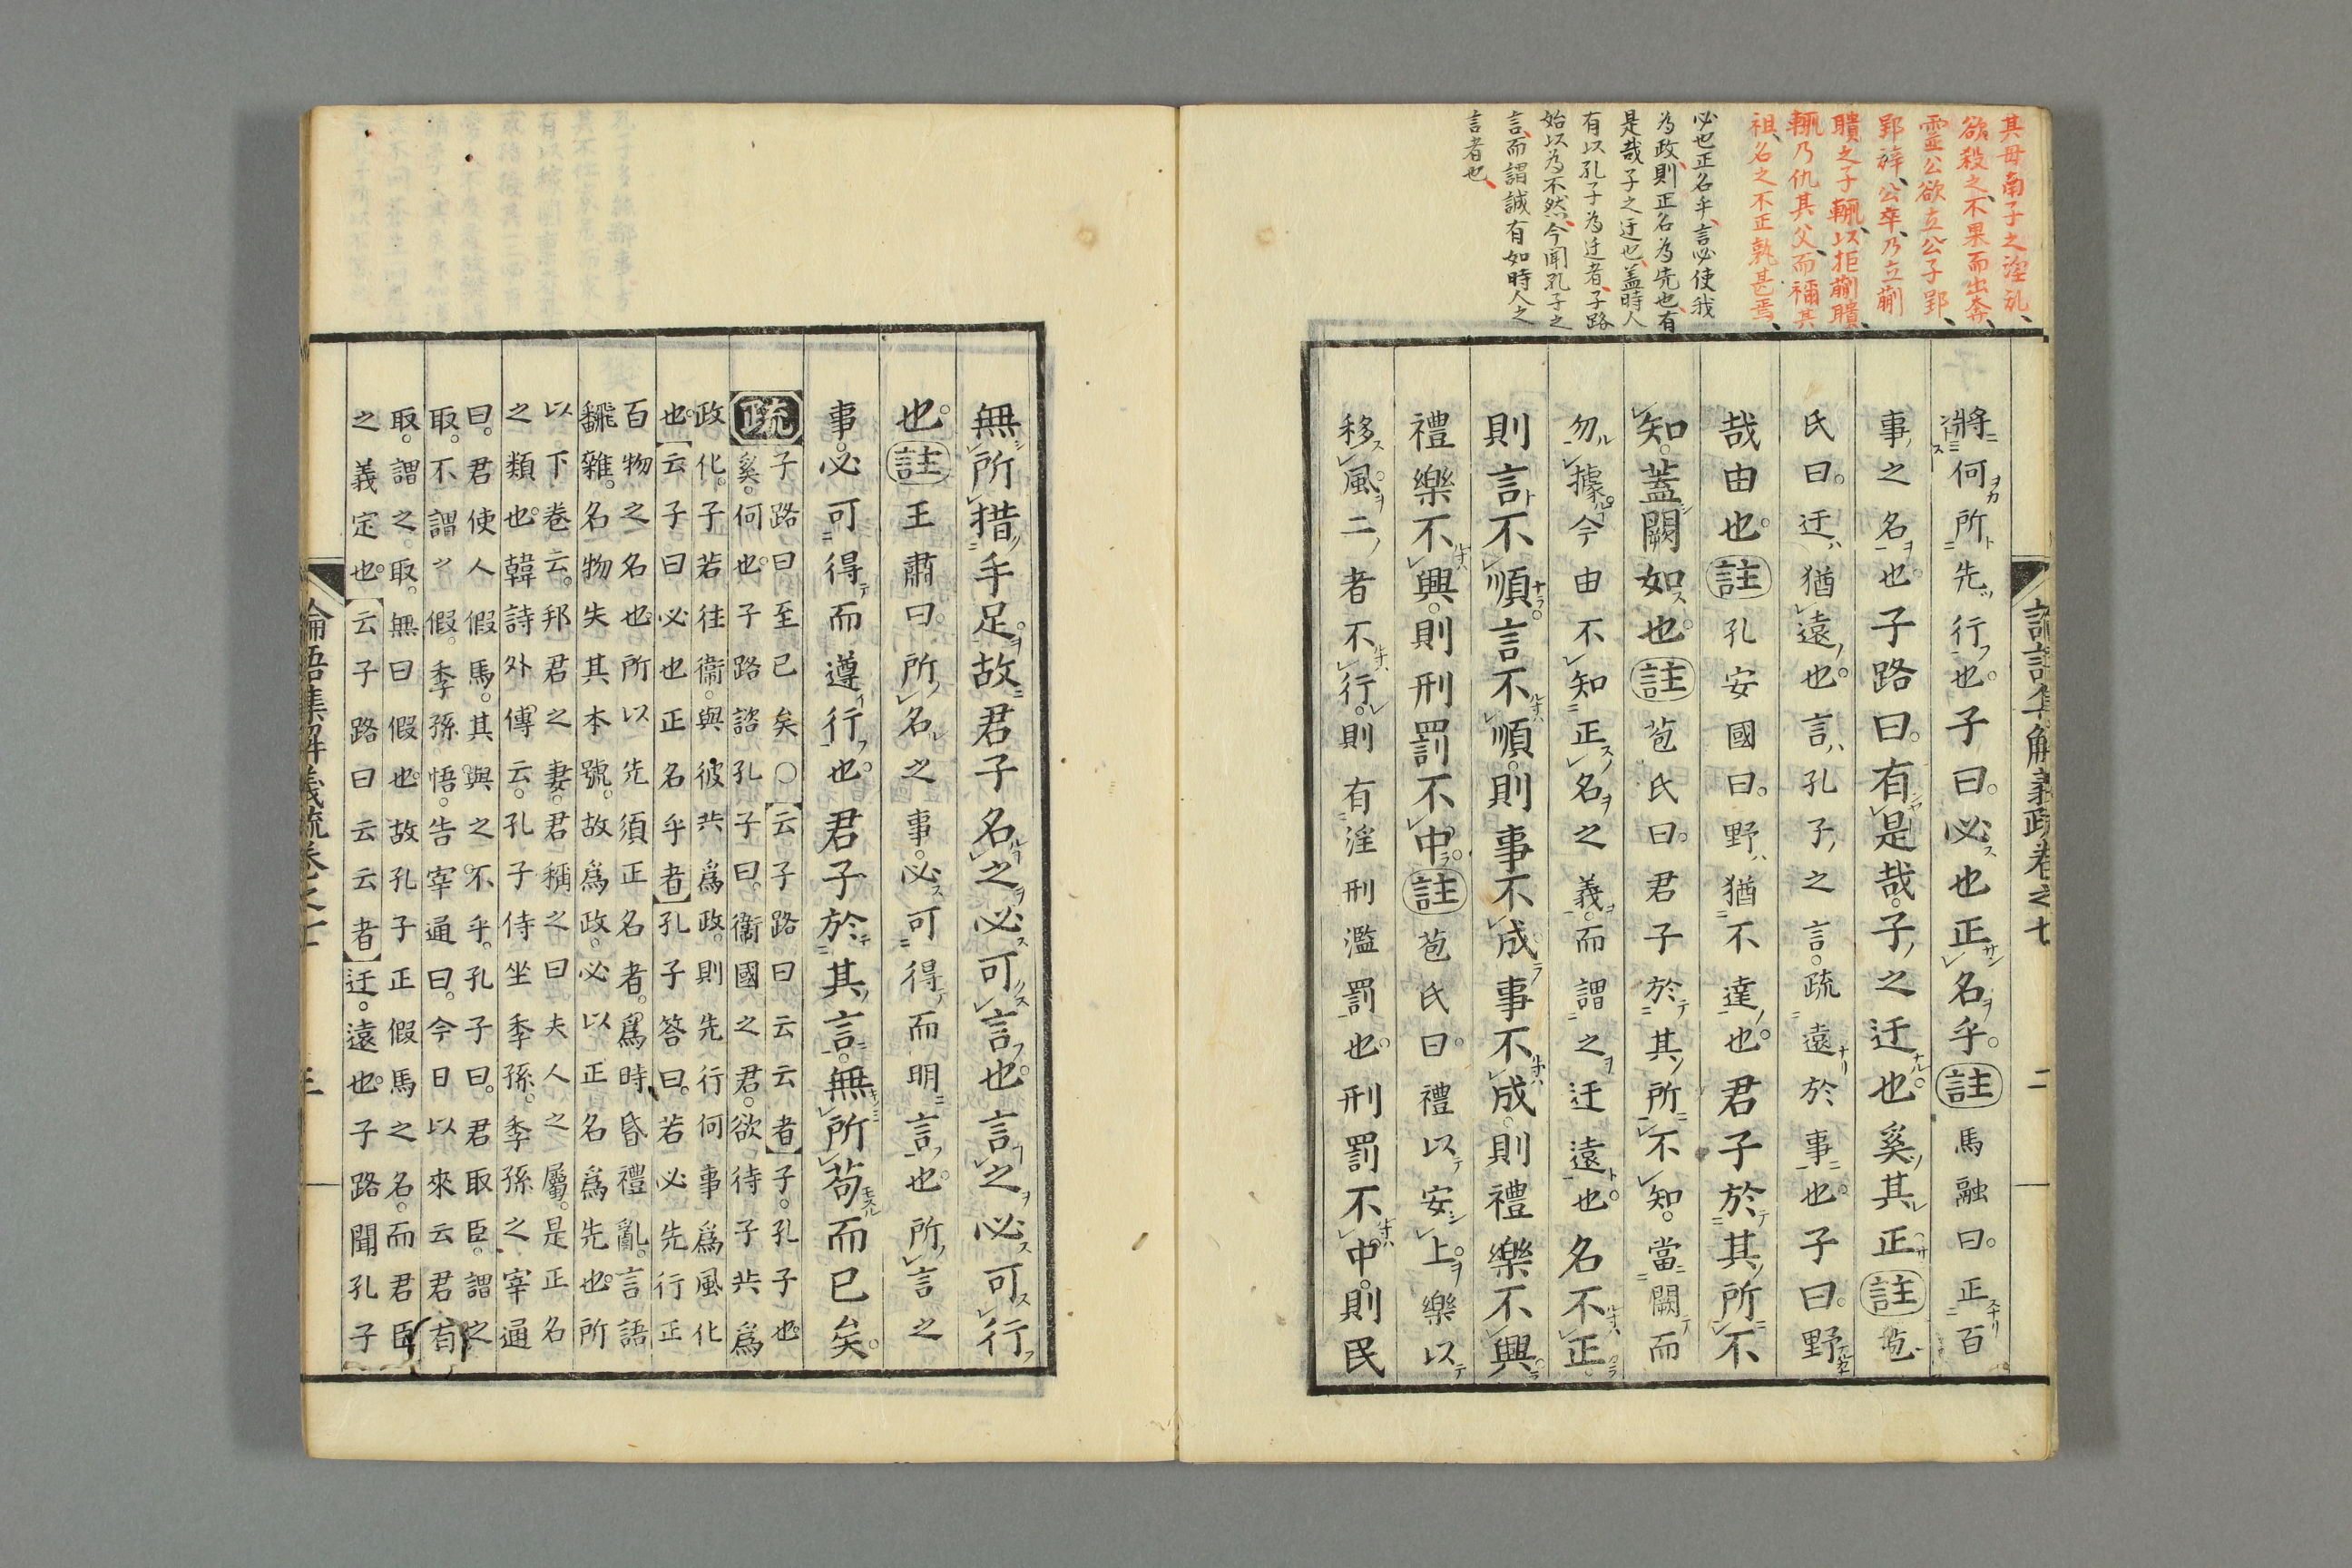 其母南子之淫乱、
欲殺之、不果而出奔、
靈公欲立公子郢、
郢辞、公卒、乃立蒯
聵之子輒、以拒蒯聵、
輒乃仇其父、而禰其
祖、名之不正孰甚焉、
必也正名乎、言必使我
為政、則正名為先也、有
是哉子之迂也、蓋時人
有以孔子為迂者、子路
始以為不然、今聞孔子之
言、而謂誠有如時人之
言者也、
論語集解義疏卷之七 二
將何所先行也。子曰。必也正名乎。註馬融曰。正百
事之名也。子路曰。有是哉。子之迂也奚其正註苞
氏曰。迂猶遠也。言孔子之言。疏遠於事也。子曰。野
哉由也。註孔安國曰。野猶不達也。君子於其所不
知。蓋闕如也。註苞氏曰。君子於其所不知。當闕而
勿據。今由不知正名之義。而謂之迂遠也。名不正。
則言不順。言不順。則事不成。事不成。則禮樂不興。
禮樂不興。則刑罰不中。註苞氏曰。禮以安上。樂以
移風。二者不行。則有淫刑濫罰也。刑罰不中。則民
無所措手足。故君子名之必可言也。言之必可行
也。註王肅曰。所名之事。必可得而明言也。所言之
事。必可得而遵行也。君子於其言。無所苟而已矣。
疏子路曰至已矣○云子路曰云云者子。孔子也。
奚。何也。子路諮孔子曰。衞國之君。欲待子共爲
政化。子若往衞。與彼共爲政。則先行何事爲風化
也。云子曰必也正名乎者孔子答曰。若必先行正
百物之名也。所以先須正名者。爲時昏禮亂。言語
飜雜。名物失其本號。故爲政。必以正名爲先也。所
以。下卷云。邦君之妻。君稱之曰夫人之屬。是正名
之類也。韓詩外傳云。孔子侍坐季孫。季孫之宰通
曰。君使人假馬。其與之不乎。孔子曰。君取臣。謂之
取。不謂之假。季孫悟。告宰通曰。今日以來云君有
取。謂之取。無曰假也。故孔子正假馬之名。而君臣
之義定也。云子路曰云云者迂。遠也。子路聞孔子
論語集解義疏卷之七